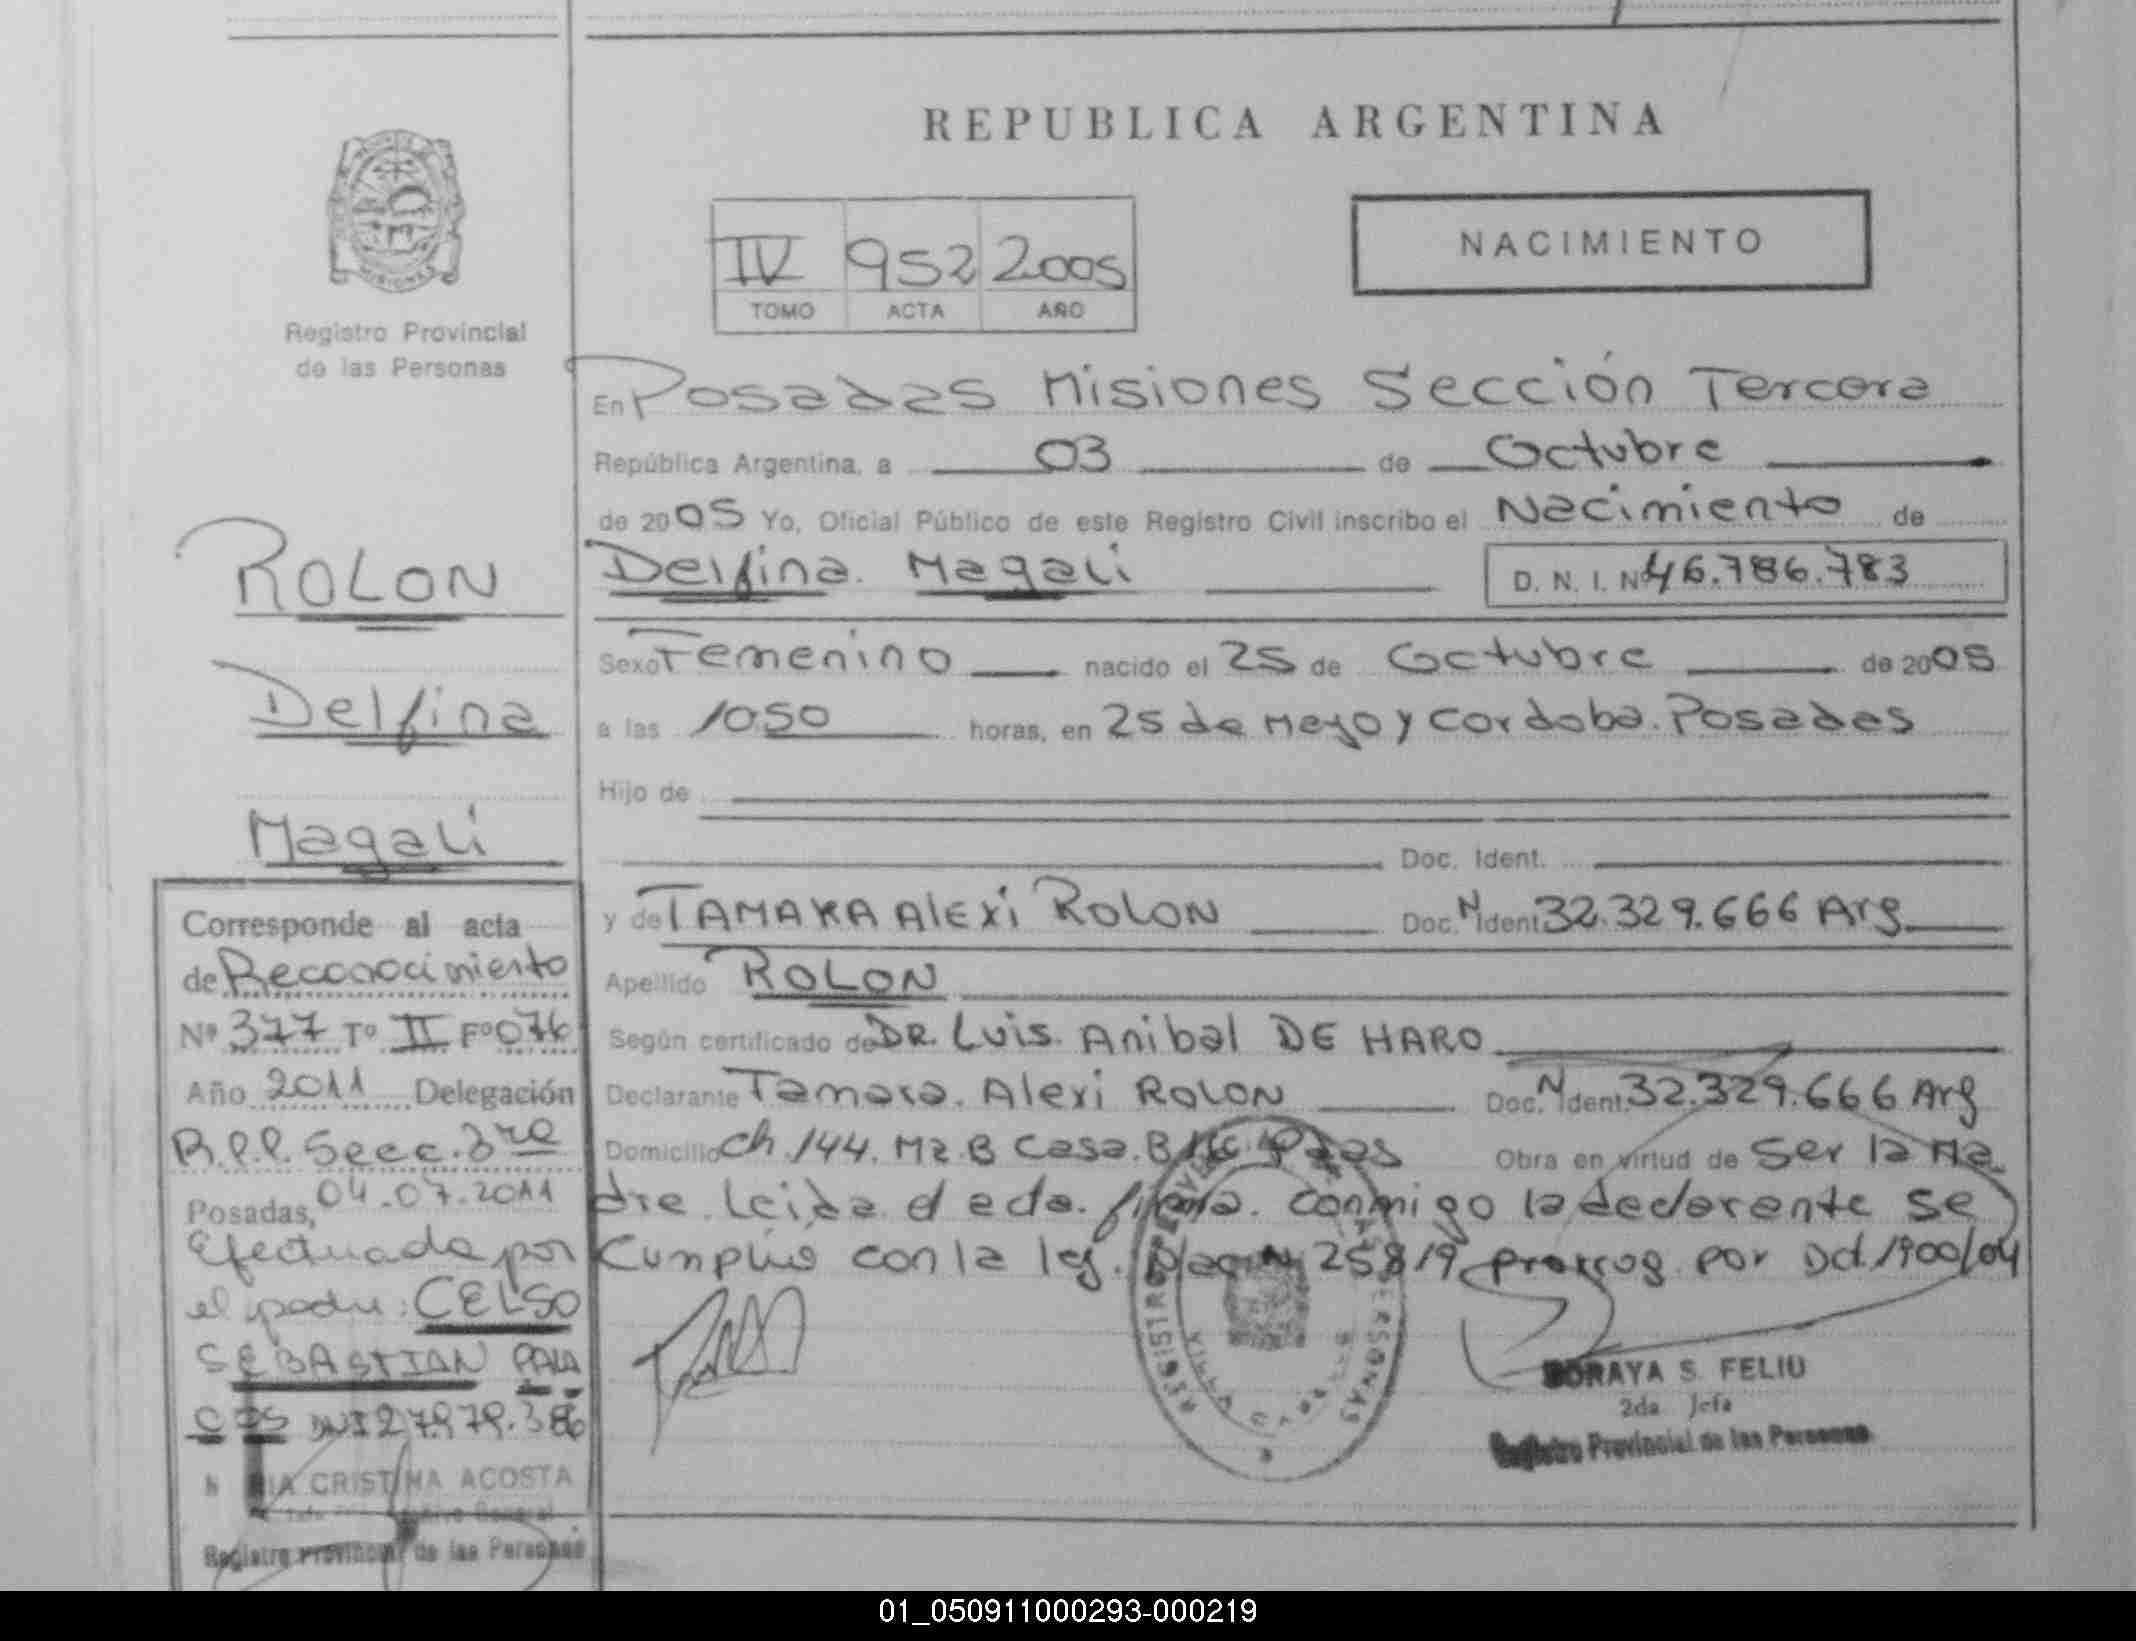 REPUBLICA ARGENTINA
IV 952 2005
TOMO ACTA AÑO
NACIMIENTO
MISIONES
Registro Provincial
de las Personas
ROLON
Delfina
Magali
En Posadas Misiones Sección Tercera
República Argentina, a 03 de Octubre
de 2005 Yo, Oficial Público de este Registro Civil inscribo el Nacimiento de
Delfina Magali D. N. I. Nº 46.786.783
Sexo Femenino nacido el 25 de Octubre de 2005
a las 1050 horas, en 25 de Mayo y Cordoba. Posadas
Hijo de
Doc. Ident.
y de TAMARA Alexi ROLON Doc. N Ident. 32.329.666 Arg
Apellido ROLON
Según certificado de DR. Luis. Anibal DE HARO
Declarante Tamara. Alexi ROLON Doc. N Ident. 32.329.666 Arg
Domicilio Ch. 144. Mz. B Casa. Pdas Obra en virtud de Ser la Ma
dre. Leida el acta. firma. conmigo la declarante Se
Cumplió con la ley. 25819 por Dct. 1900/04
SORAYA S. FELIU
2da Jefa
Registro Provincial de las Personas
Corresponde al acta
de Reconocimiento
Nº 377 Tº II Fº 076
Año 2011 Delegación
R.P.P. Secc. 3ra
Posadas, 04.07.2011
Efectuada por
el padre: CELSO
SEBASTIAN PALA
CIOS DNI 27.979.386
RIA CRISTINA ACOSTA
Archivo General
Registro Provincial de las Personas
01_050911000293-000219